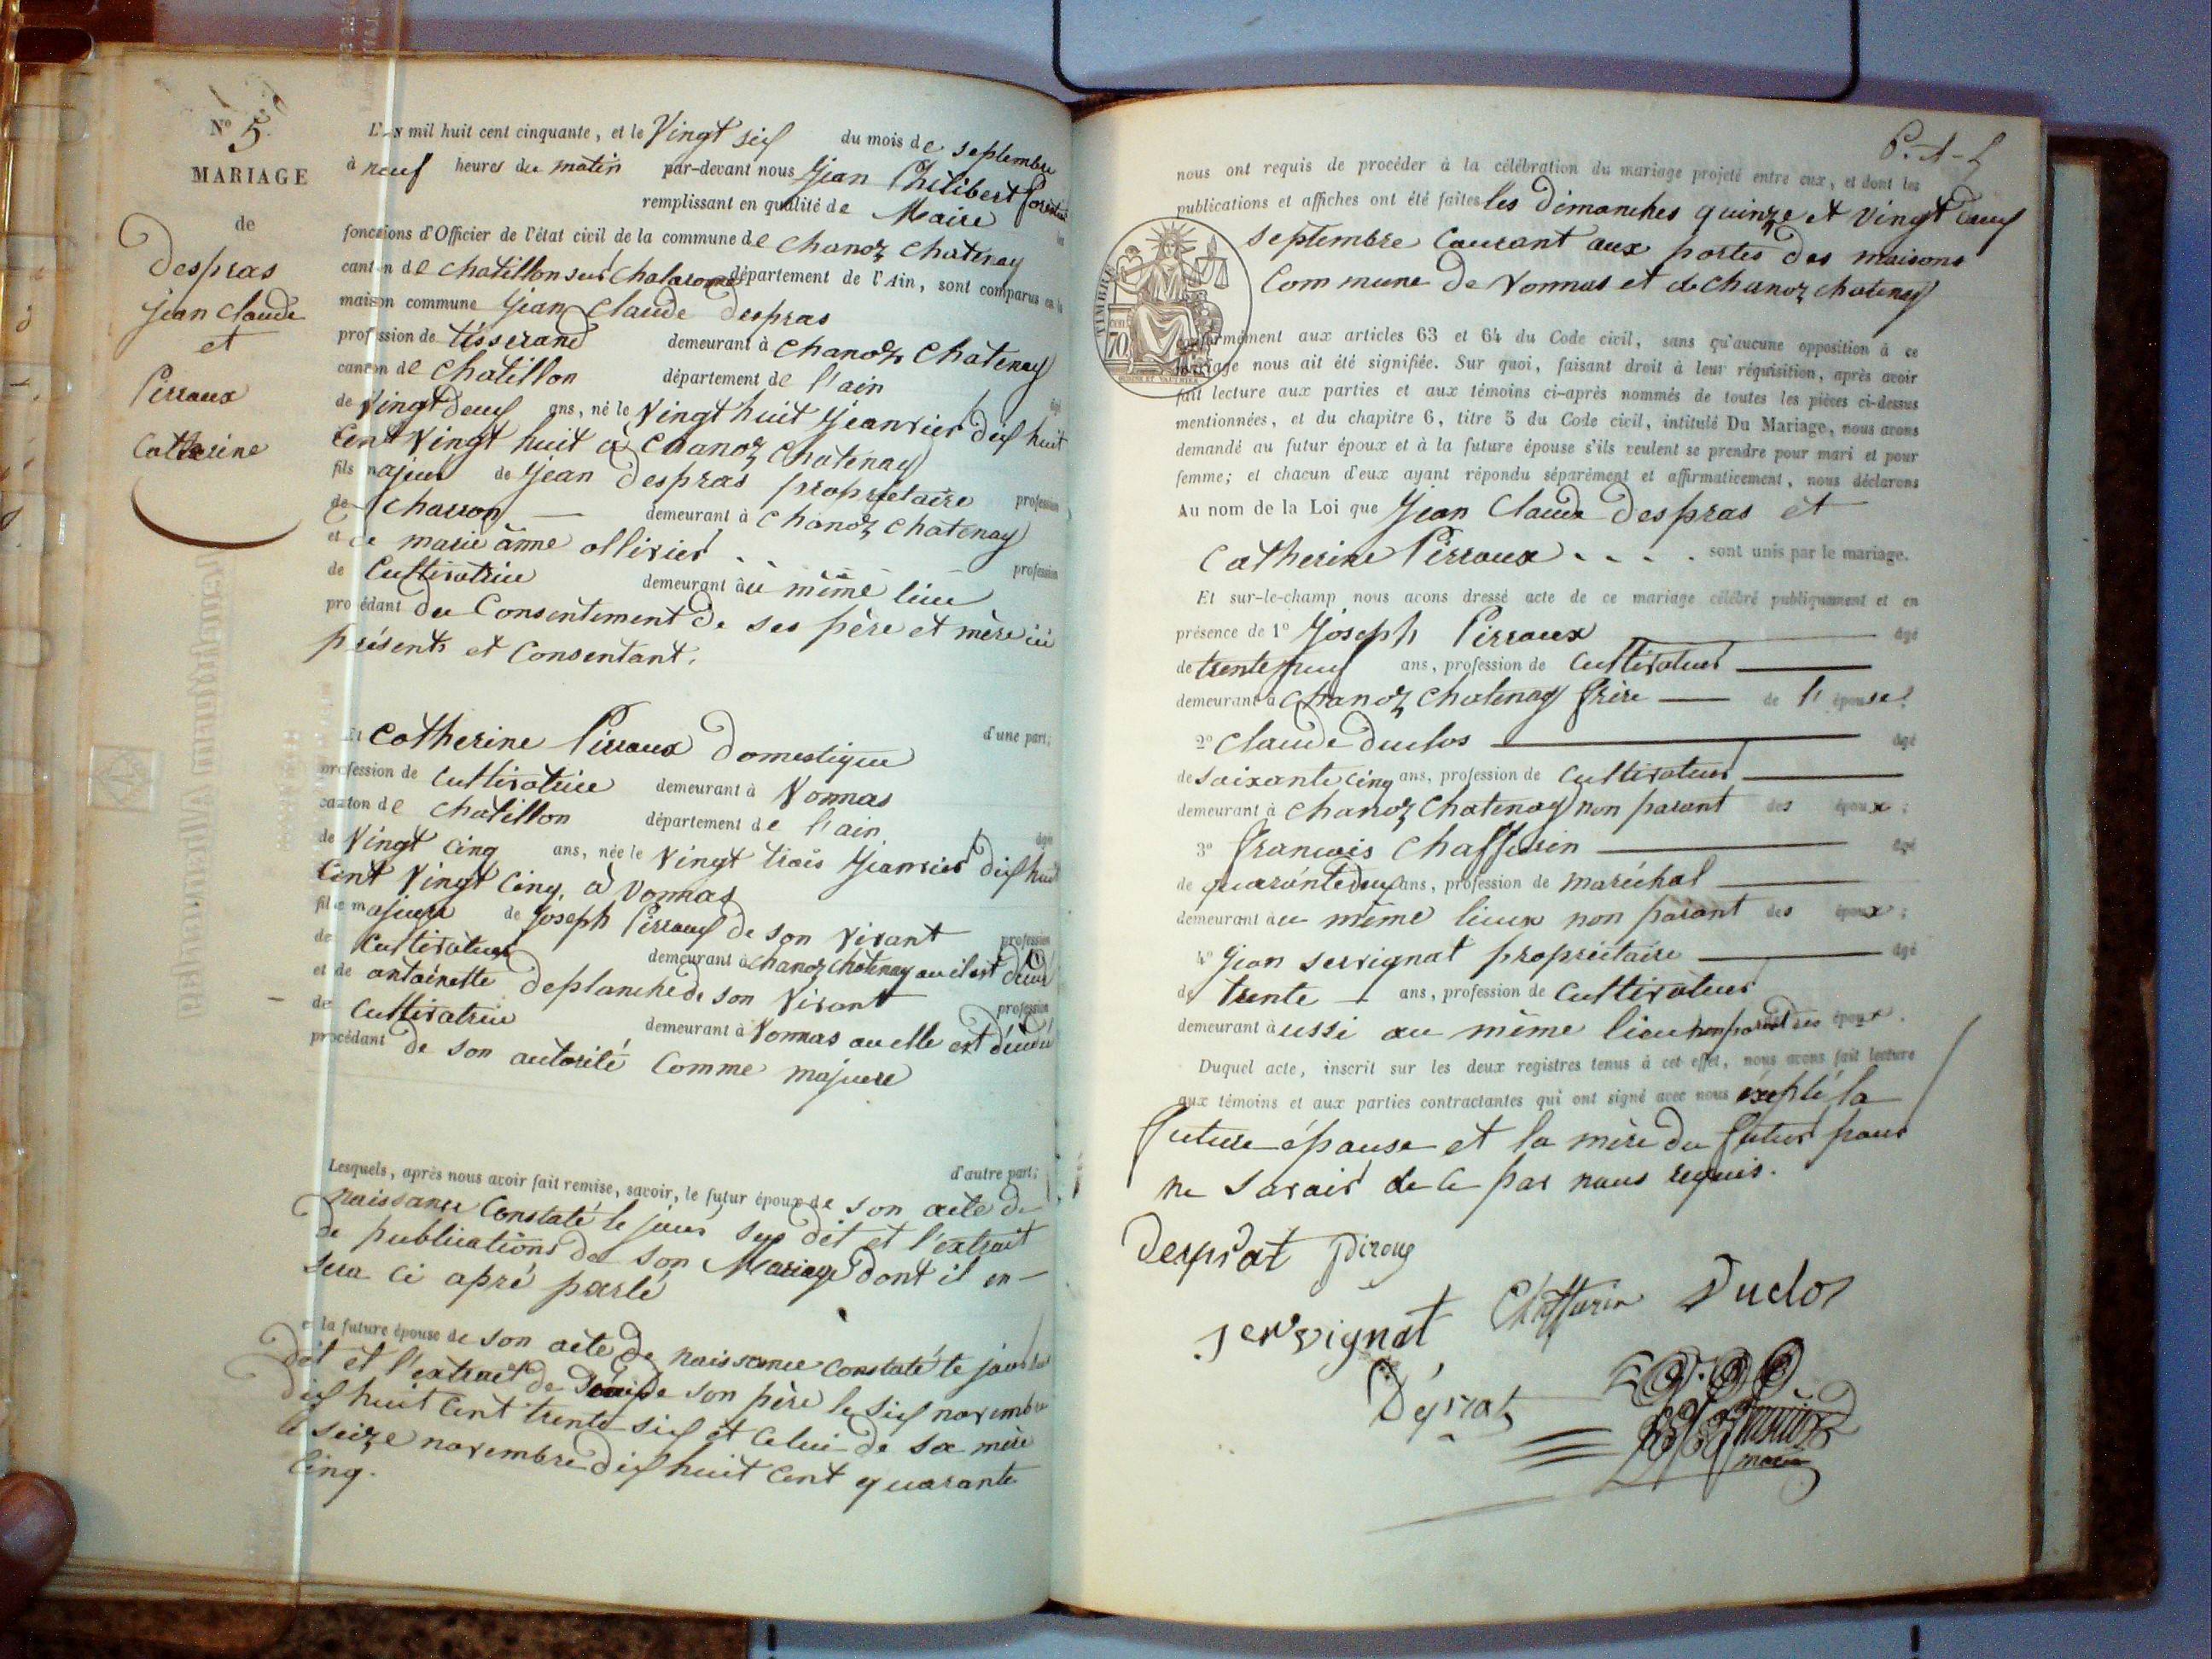 N° 5
MARIAGE
de
Despras
Jean Claude
et
Pirraux
Catherine
L'an mil huit cent cinquante, et le Vingt six du mois de septembre
à neuf heures du matin par-devant nous Jean Philibert
remplissant en qualité de Maire les
fonctions d'Officier de l'état civil de la commune de Chanoz Chatenay
canton de Chatillon sur Chalaronne département de l'Ain, sont comparus en la
maison commune Jean Claude Despras
profession de tisserand demeurant à Chanoz Chatenay
canton de Chatillon département de l'ain âgé
de Vingt deux ans, né le Vingt huit Jeanvier dix huit
Cent Vingt huit à Chanoz Chatenay
fils majeur de Jean Despras propriétaire profession
de Charron demeurant à Chanoz Chatenay
et de marie anne ollivier profession
de Cultivatrice demeurant au même lieu
procédant du Consentement de ses père et mère ici
présents et Consentant.
d'une part;
Et Catherine Pirraux Domestique
profession de Cultivatrice demeurant à Vonnas
canton de Chatillon département de l'ain âgée
de Vingt cinq ans, née le Vingt trois Jeanvier dix huit
Cent Vingt cinq, à Vonnas
fille majeure de Joseph Pirraux de son vivant profession
de Cultivateur demeurant à Chanoz Chatenay ou il est
et de antoinette Deplanche de son vivant profession
de Cultivatrice demeurant à Vonnas ou elle est
procédant de son autorité Comme majeure
d'autre part;
Lesquels, après nous avoir fait remise, savoir, le futur époux de son acte de
naissance Constaté le jour sus dit et l'extrait
de publications de son Mariage dont il en
sera ci apré parlé
et la future épouse de son acte de naissance constaté le jour sus
dit et l'extrait de de son père le six novembre
dix huit Cent trente six et Celui de sa mère
le seize novembre dix huit Cent quarante
Cinq.
nous ont requis de procéder à la célébration du mariage projeté entre eux, et dont les
publications et affiches ont été faites les Dimanches quinze et vingt deux
septembre Courant aux portes des maisons
Commune de Vonnas et de Chanoz Chatenay
TIMBRE
70
conformément aux articles 63 et 64 du Code civil, sans qu'aucune opposition à ce
mariage nous ait été signifiée. Sur quoi, faisant droit à leur réquisition, après avoir
fait lecture aux parties et aux témoins ci-après nommés de toutes les pièces ci-dessus
mentionnées, et du chapitre 6, titre 5 du Code civil, intitulé Du Mariage, nous avons
demandé au futur époux et à la future épouse s'ils veulent se prendre pour mari et pour
femme; et chacun d'eux ayant répondu séparément et affirmativement, nous déclarons
Au nom de la Loi que Jean Claude Despras et
Catherine Pirraux sont unis par le mariage.
Et sur-le-champ nous avons dressé acte de ce mariage célébré publiquement et en
présence de 1° Joseph Pirraux âgé
de trente neuf ans, profession de Cultivateur
demeurant à Chanoz Chatenay frère de l'épouse;
2° Claude Duclos âgé
de soixante cinq ans, profession de Cultivateur
demeurant à Chanoz Chatenay non parant des époux;
3° francois Chaffurin âgé
de quarante deux ans, profession de maréchal
demeurant au même lieux non parant des époux;
4° Jean servignat propriétaire âgé
de trente ans, profession de Cultivateur
demeurant aussi au même lieu non parant des époux.
Duquel acte, inscrit sur les deux registres tenus à cet effet, nous avons fait lecture
aux témoins et aux parties contractantes qui ont signé avec nous éxepté la
future épouse et la mère du futur pour
ne savoir de ce par nous requis.
Desprat Piroux
servignat Chaffurin Duclos
Déprat
maire